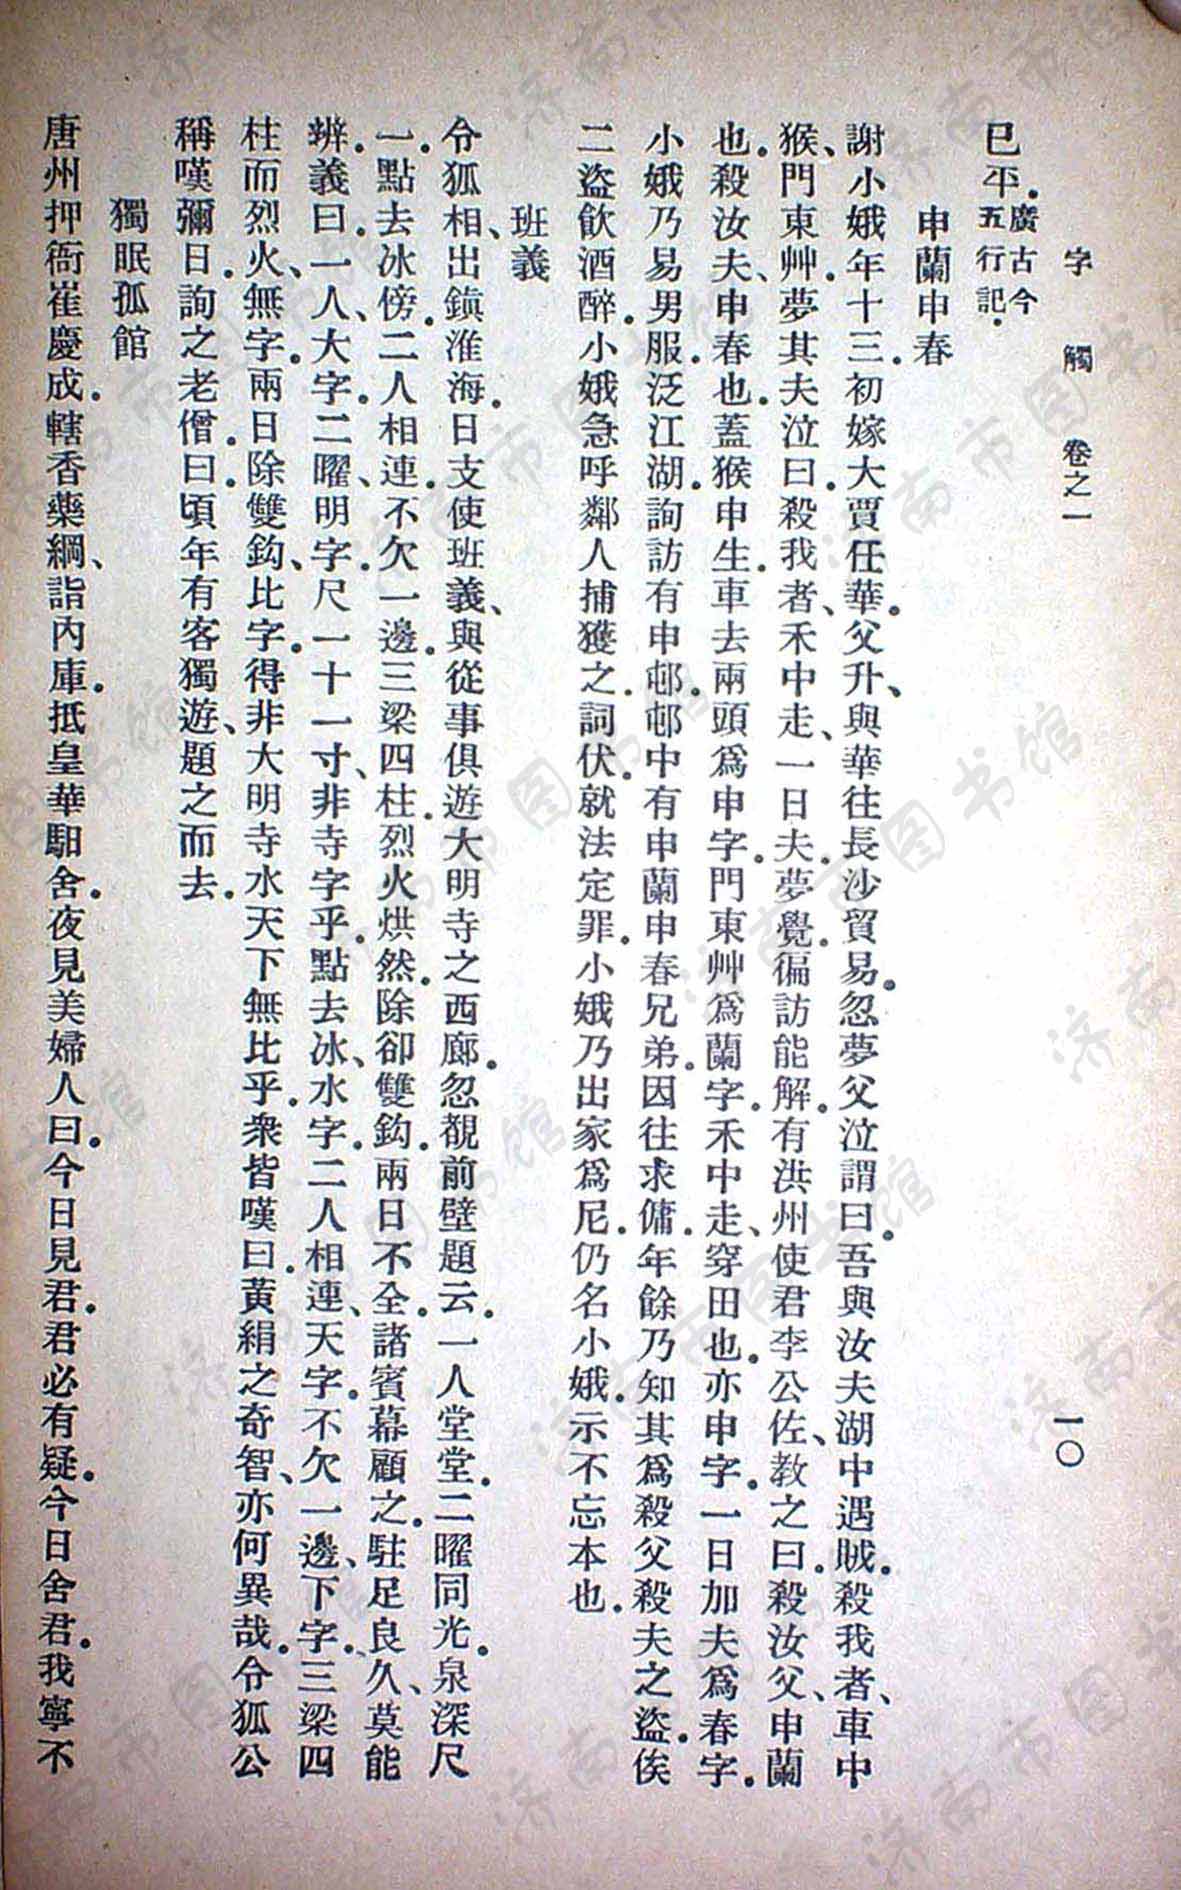 字觸 卷之一 一〇
已平。廣古今五行記。
申蘭申春
謝小娥年十三。初嫁大賈任華。父升、與華往長沙貿易。忽夢父泣謂曰。吾與汝夫湖中遇賊。殺我者、車中
猴、門東艸。夢其夫泣曰。殺我者、禾中走、一日夫。夢覺。徧訪能解。有洪州使君李公佐、教之曰。殺汝父、申蘭
也。殺汝夫、申春也。蓋猴申生。車去兩頭爲申字。門東艸爲蘭字。禾中走、穿田也。亦申字。一日加夫爲春字。
小娥乃易男服。泛江湖。詢訪有申邨。邨中有申蘭申春兄弟。因往求傭。年餘乃知其爲殺父殺夫之盜。俟
二盜飲酒醉。小娥急呼鄰人捕獲之。詞伏。就法定罪。小娥乃出家爲尼。仍名小娥。示不忘本也。
班義
令狐相、出鎮淮海。日支使班義、與從事俱遊大明寺之西廊。忽覩前壁題云。一人堂堂。二曜同光。泉深尺
一。點去冰傍。二人相連。不欠一邊。三梁四柱。烈火烘然。除卻雙鈎。兩日不全。諸賓幕顧之。駐足良久、莫能
辨。義曰。一人、大字。二曜、明字。尺一十一寸、非寺字乎。點去冰、水字。二人相連、天字。不欠一邊、下字。三梁四
柱而烈火、無字。兩日除雙鈎、比字。得非大明寺水天下無比乎。衆皆嘆曰。黃絹之奇智、亦何異哉。令狐公
稱嘆彌日。詢之老僧。曰。頃年有客獨遊、題之而去。
獨眠孤館
唐州押衙崔慶成。轄香藥綱、詣內庫。抵皇華馹舍。夜見美婦人曰。今日見君。君必有疑。今日舍君。我寧不